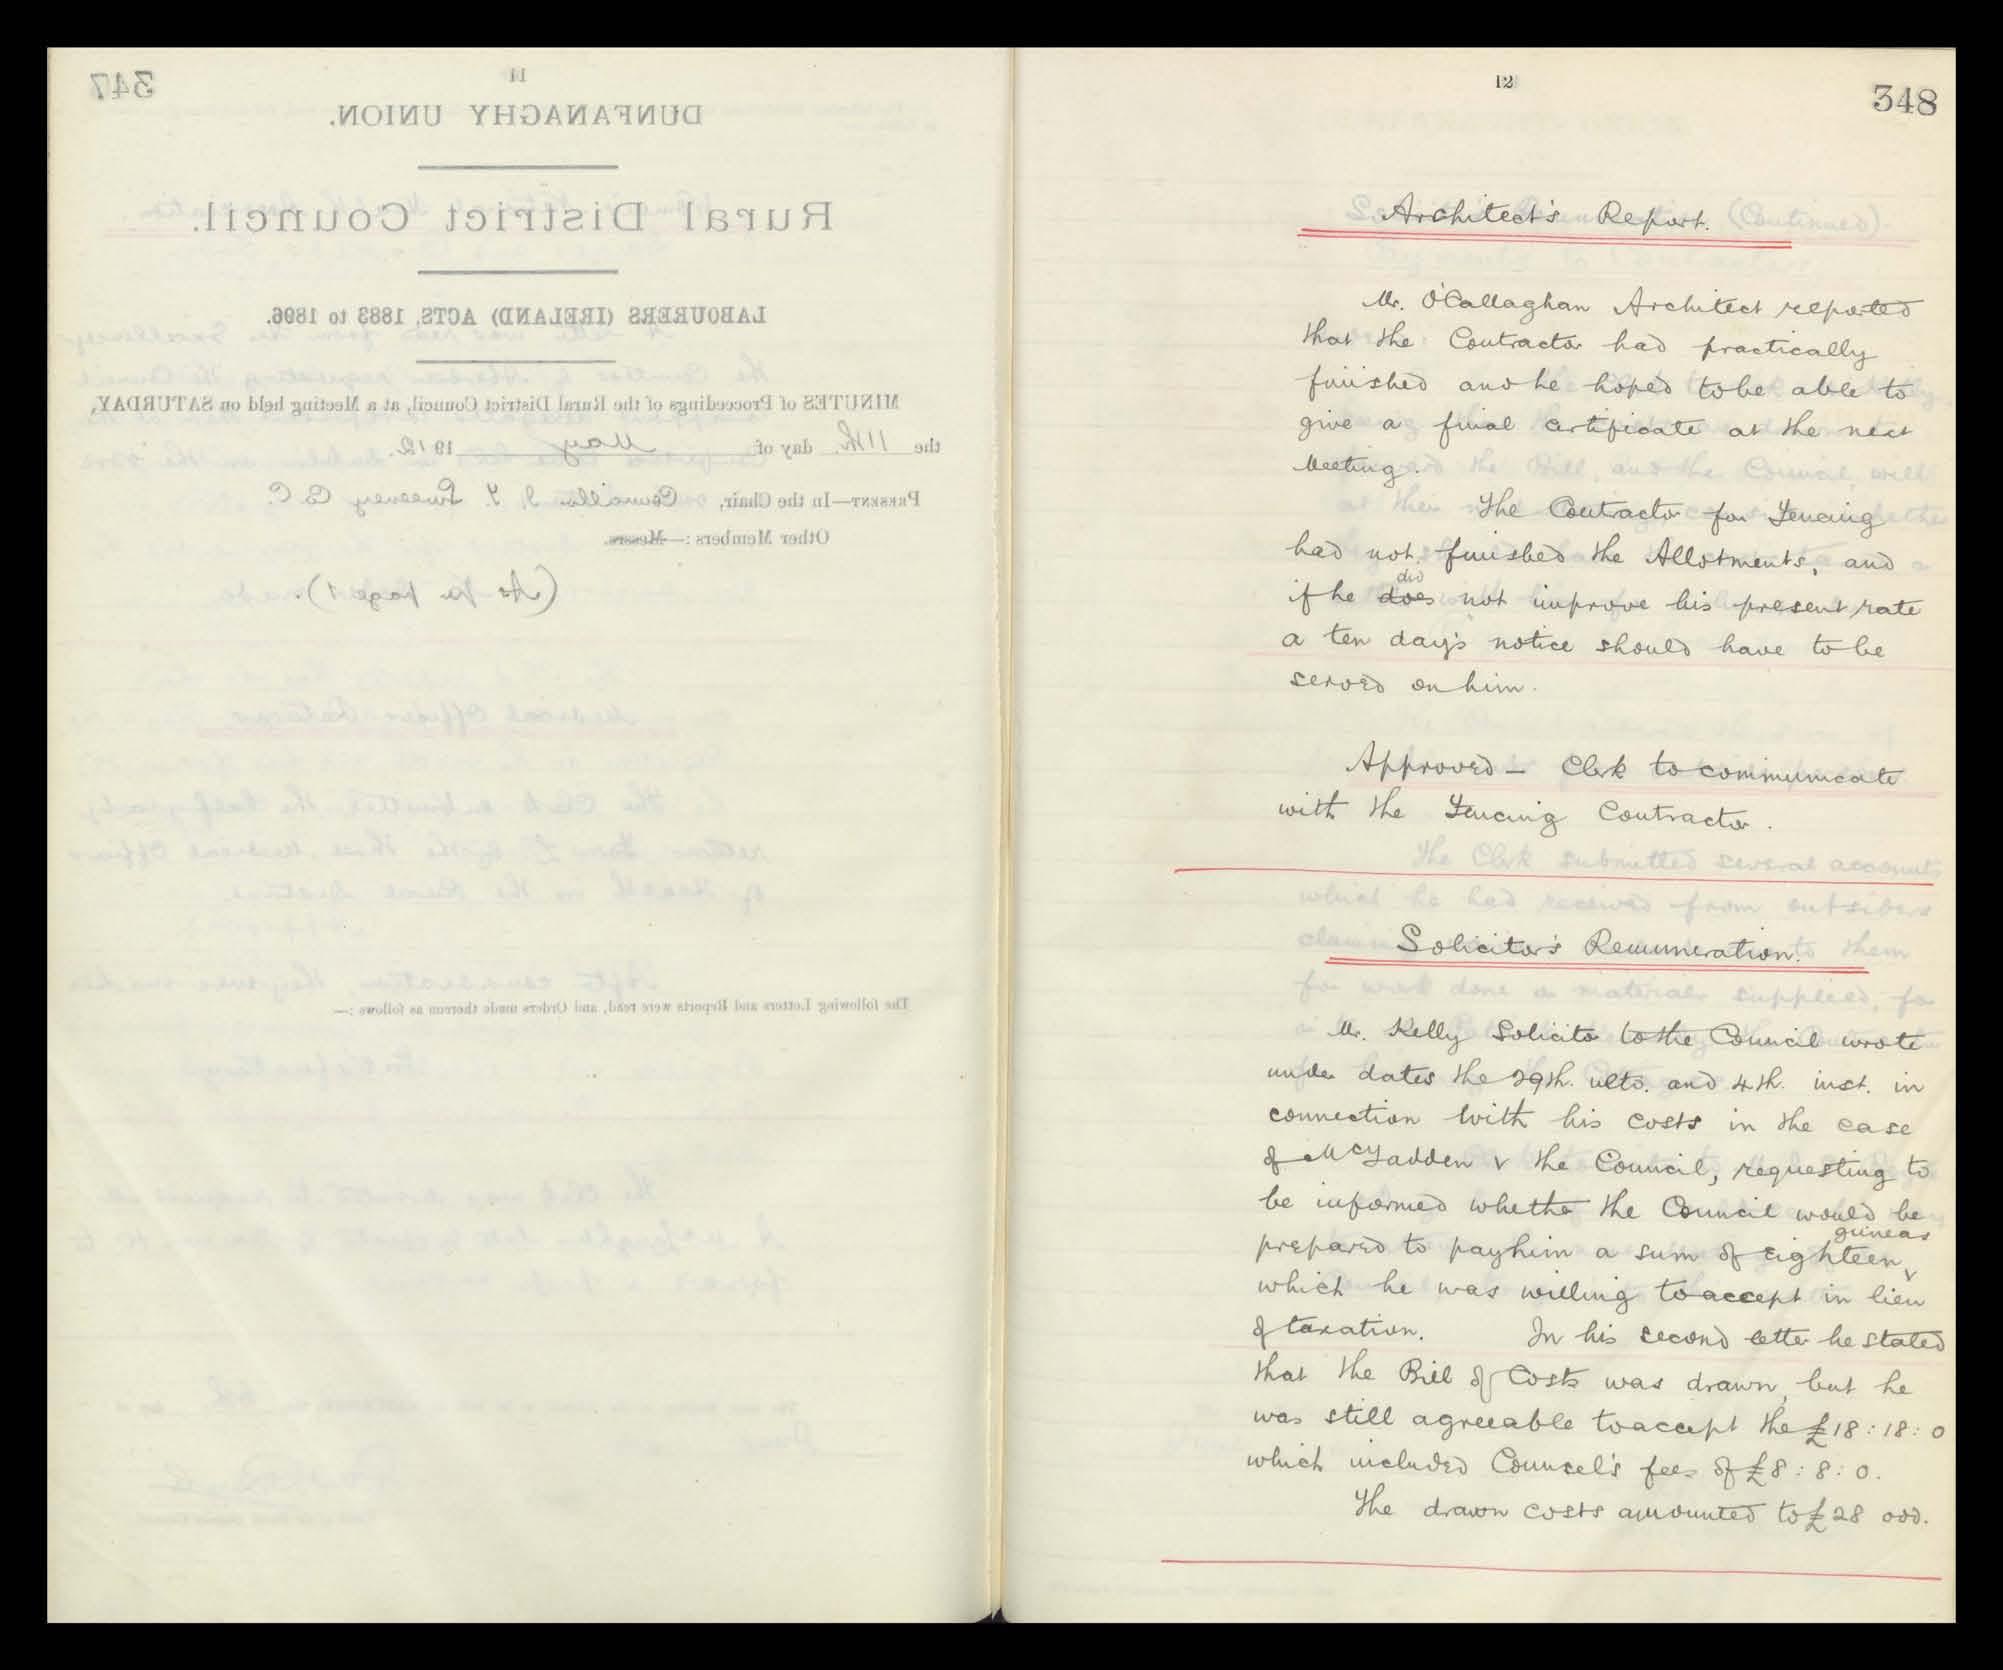 347
11
DUNFANAGHY UNION.
Rural District Council.
LABOURERS (IRELAND) ACTS, 1883 to 1896.
MINUTES of Proceedings of the Rural District Council, at a Meeting held on SATURDAY,
the 11th. day of May 1912.
PRESENT—In the Chair, Councillor J. Y. Sweeney Co. C.
Other Members :—Messrs.
(As per page 1).
The following Letters and Reports were read, and Orders made thereon as follows :—
12
348
Architect's Report.
Mr. O'Callaghan Architect reported
that the Contractor had practically
finished and he hoped to be able to
give a final certificate at the next
Meeting.
The Contractor for Fencing
had not finished the Allotments, and
did
if he does not improve his present rate
a ten day's notice should have to be
served on him.
Approved — Clerk to communicate
with the Fencing Contractor.
Solicitor's Remuneration.
Mr. Kelly Solicitor to the Council wrote
under dates the 29th. ulto. and 4th. inst. in
connection with his costs in the case
of McFadden v the Council, requesting to
be informed whether the Council would be
guineas
prepared to pay him a sum of eighteen
which he was willing to accept in lieu
of taxation. In his second letter he stated
that the Bill of Costs was drawn, but he
was still agreeable to accept the £18:18:0
which included Counsel's fees of £8:8:0.
The drawn costs amounted to £28 odd.